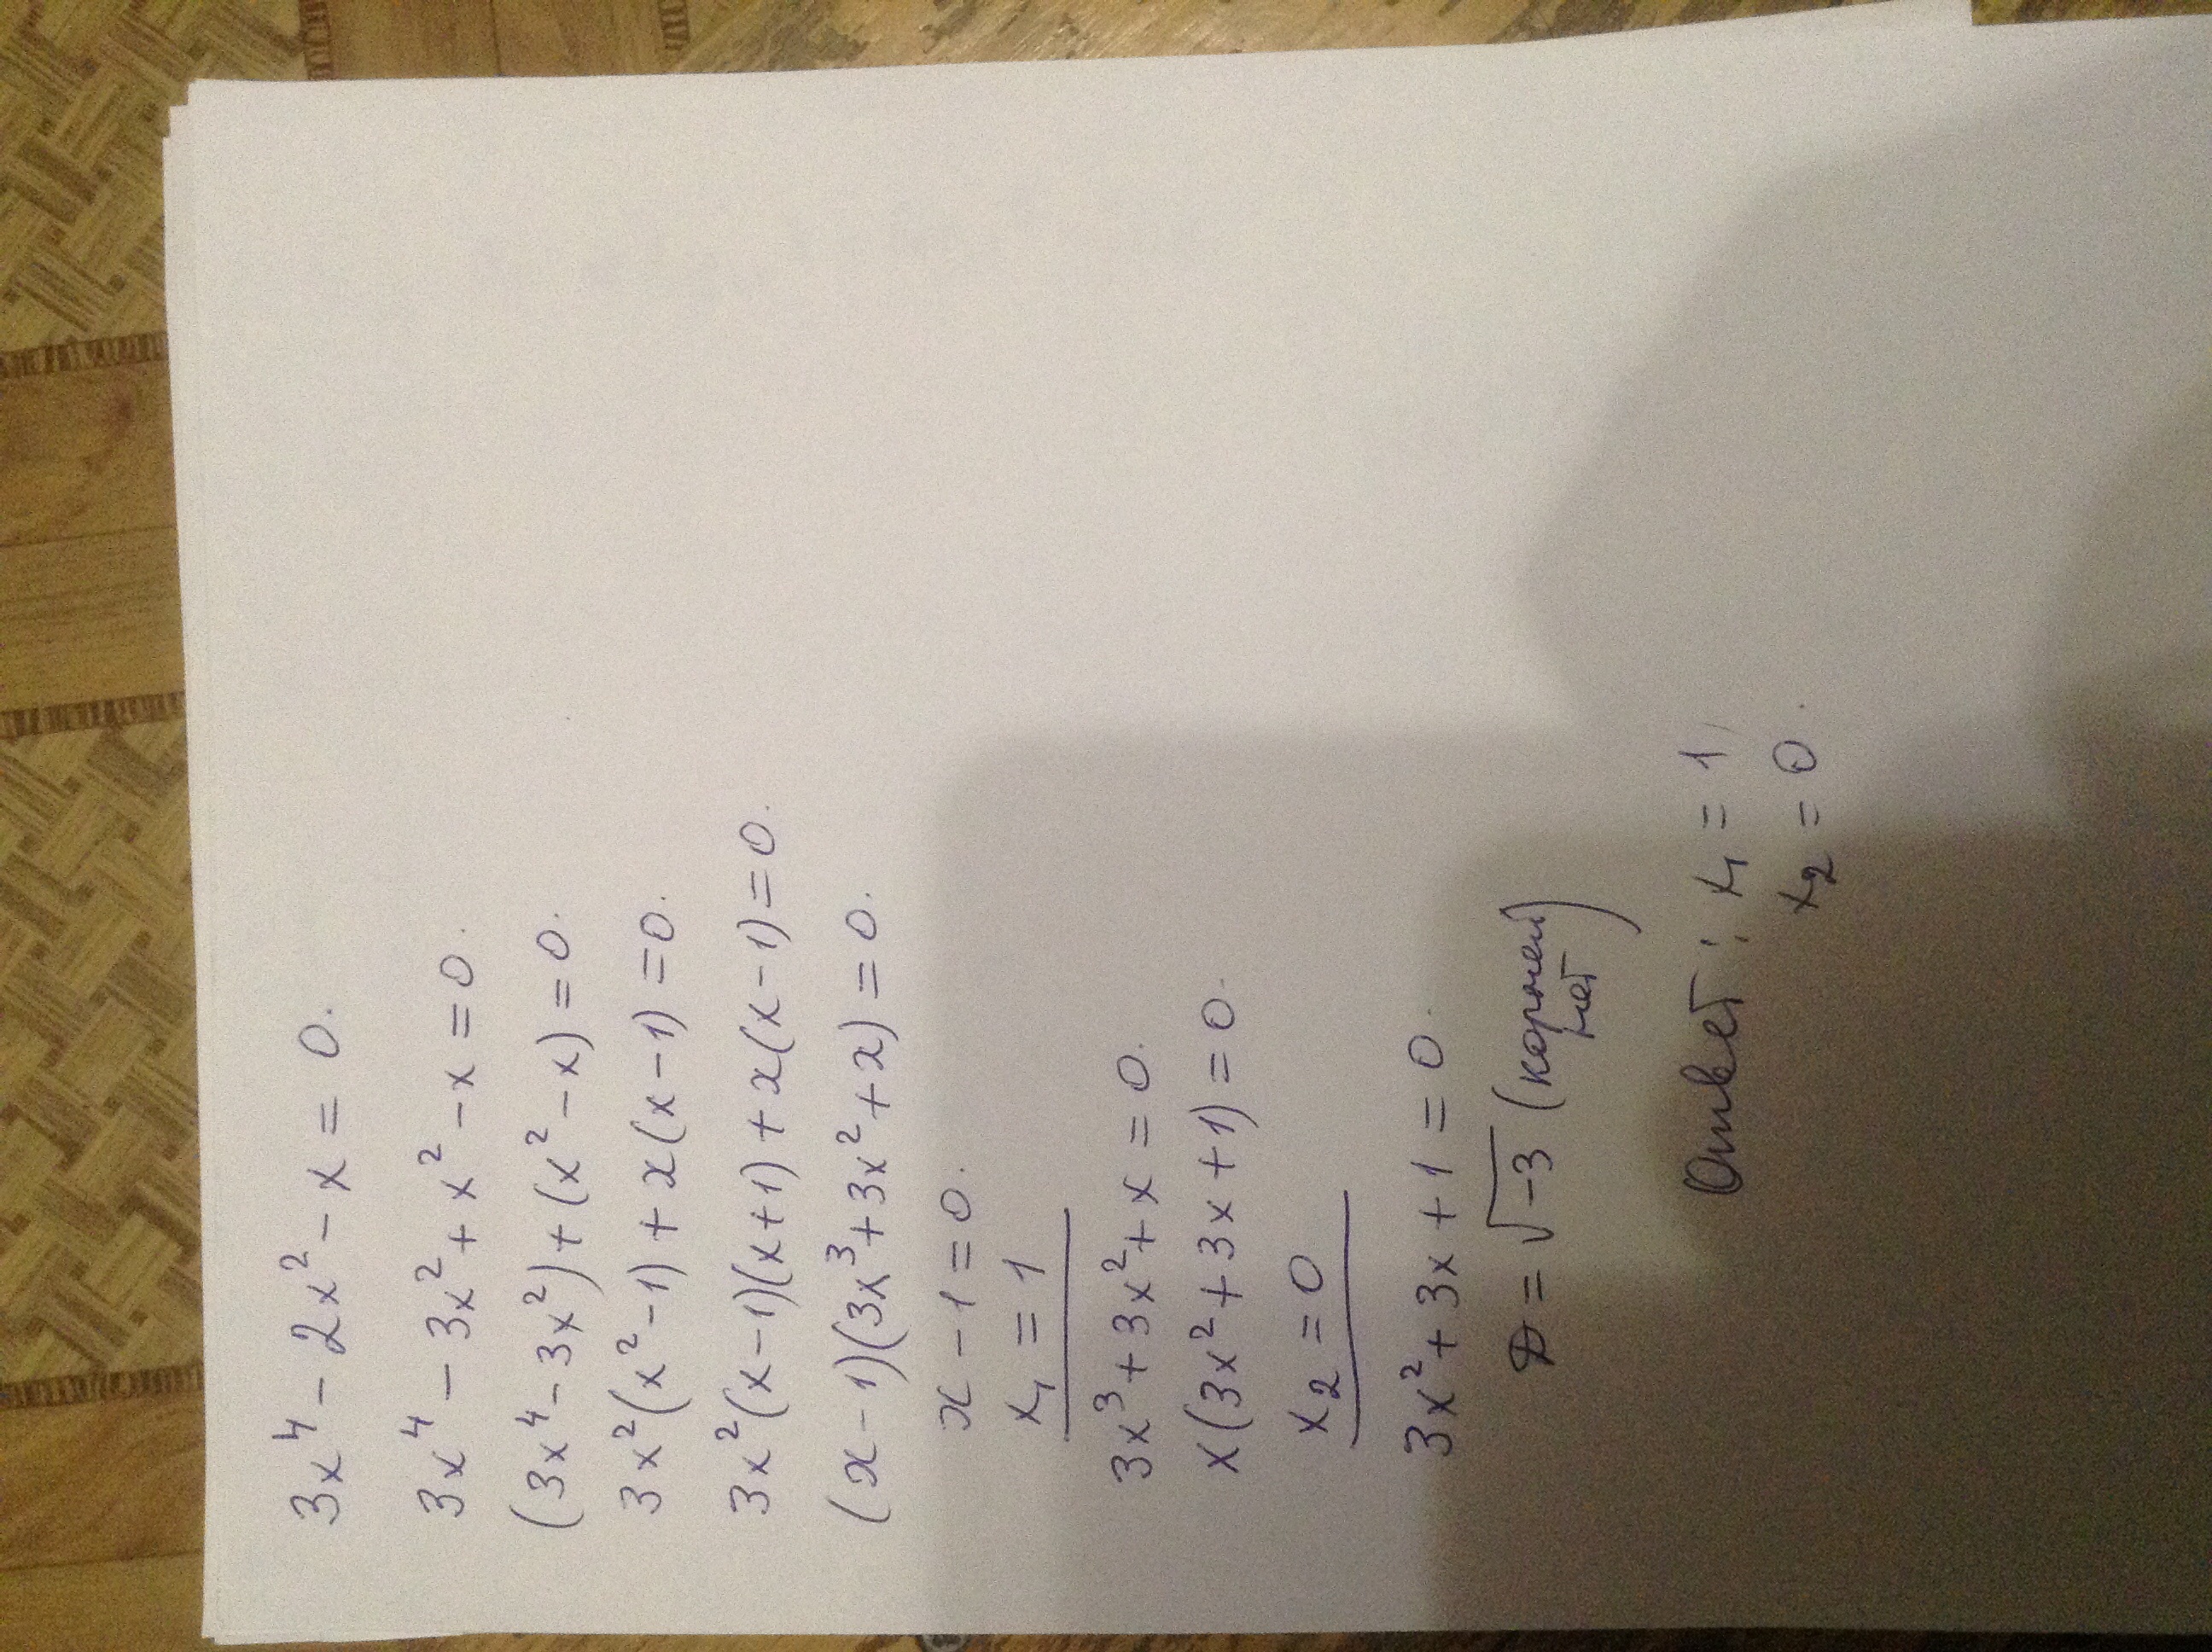 3x⁴ - 2x² - x = 0.
3x⁴ - 3x² + x² - x = 0.
(3x⁴ - 3x²) + (x² - x) = 0.
3x²(x² - 1) + x(x - 1) = 0.
3x²(x - 1)(x + 1) + x(x - 1) = 0.
(x - 1)(3x³ + 3x² + x) = 0.
x - 1 = 0.
x₁ = 1
3x³ + 3x² + x = 0.
x(3x² + 3x + 1) = 0.
x₂ = 0
3x² + 3x + 1 = 0.
D = √-3 (корней
нет)
Ответ: x₁ = 1,
x₂ = 0.